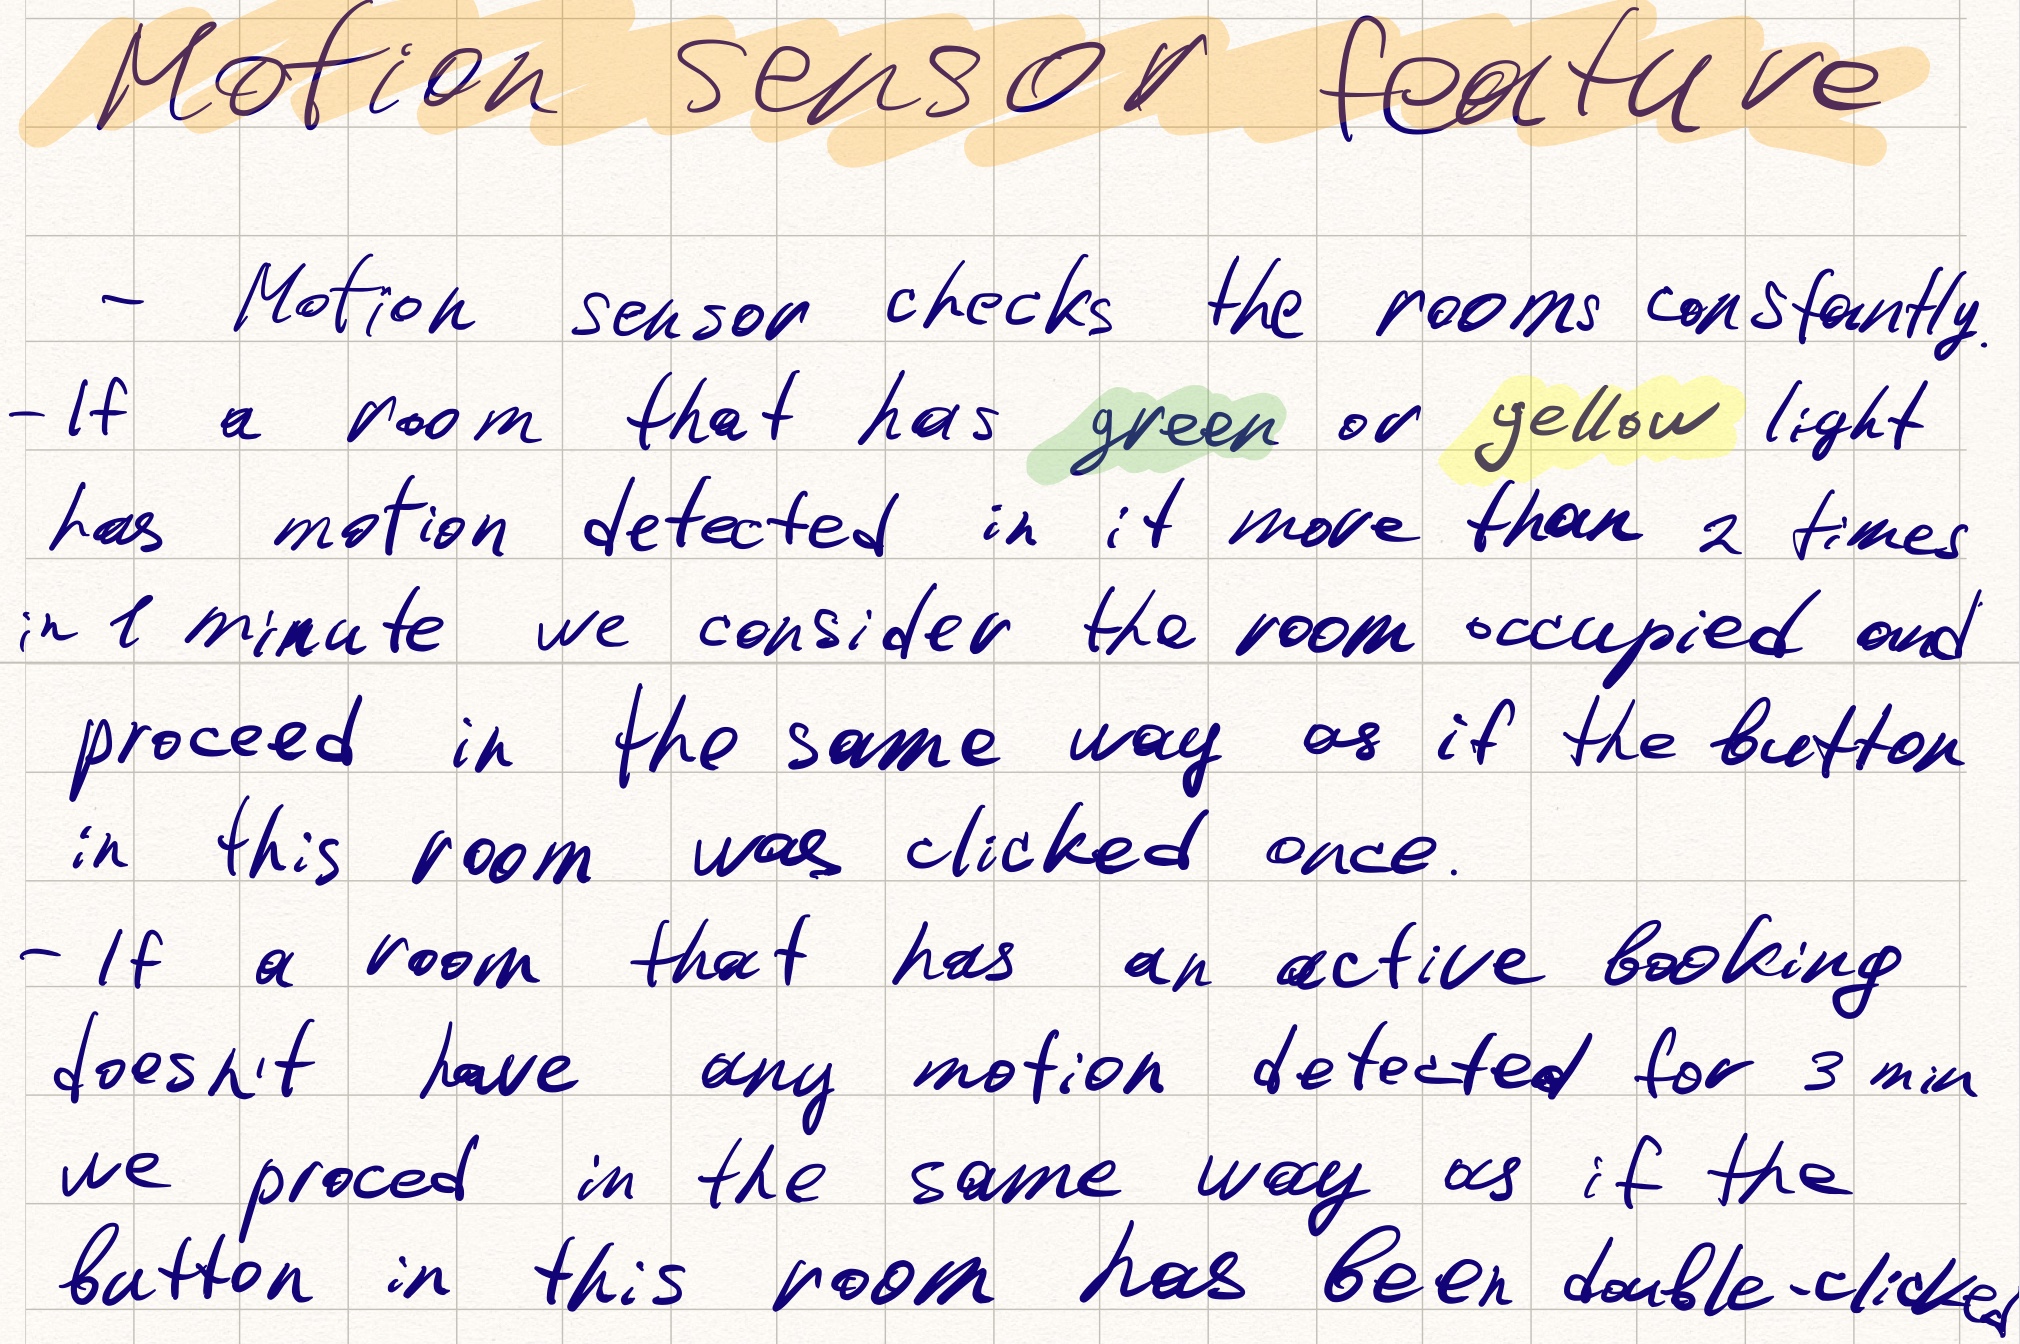 Motion sensor feature
- Motion sensor checks the rooms constantly.
- If a room that has green or yellow light
has motion detected in it more than 2 times
in 1 minute we consider the room occupied and
proceed in the same way as if the button
in this room was clicked once.
- If a room that has an active booking
doesn't have any motion detected for 3 min
we proced in the same way as if the
button in this room has been double-clicked